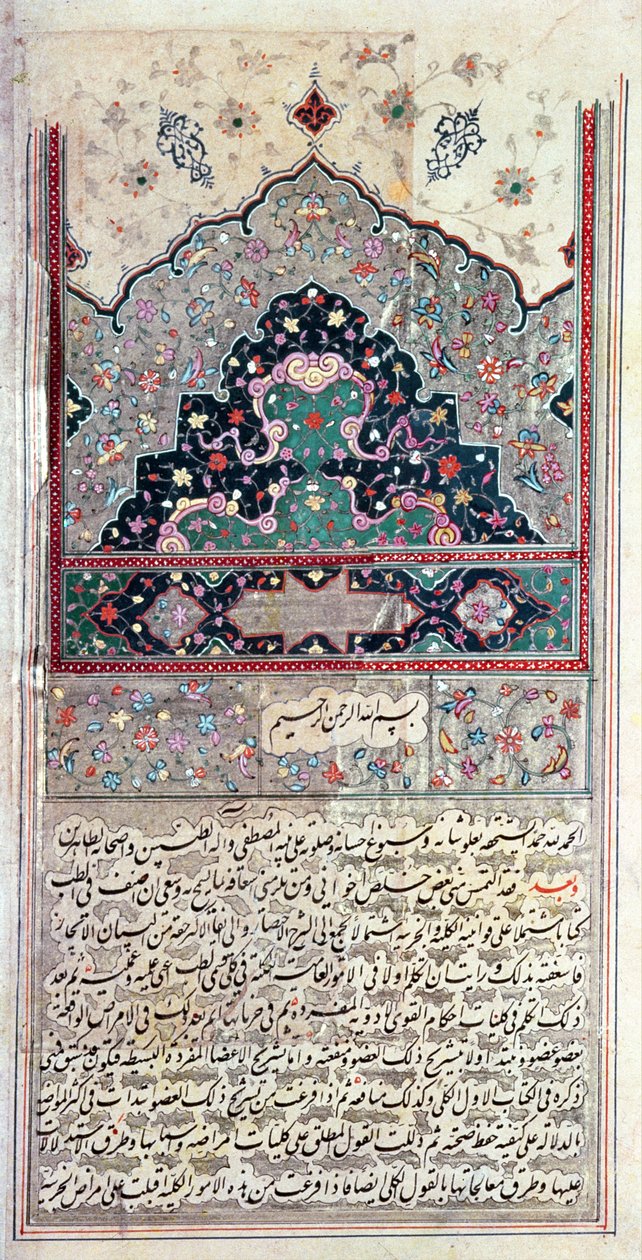 بسم الله الرحمن الرحيم
الحمد لله حمدا يستحقه بعلو شانه وسبوغ احسانه وصلوته على نبيه المصطفى واله الطيبين واصحابه الطاهرين
وبعد فقد التمس منى بعض خلص اخوانى ومن يلزمنى اسعافه بما يسمح به وسعى ان اصنف فى الطب
كتابا مشتملا على قوانينه الكلية والجزئية اشتمالا يجمع الى الشرح الاختصار والى ايفاء الاكثر حقه من البيان الايجاز
فاسعفته بذلك ورايت ان اتكلم اولا فى الامور العامة الكلية فى كلى قسمى الطب اعنى علمية وعملية ثم بعد
ذلك اتكلم فى كليات احكام القوى الادوية المفردة ثم فى جزئياتها ثم بعد ذلك فى الامراض الواقعة
بعضو عضو ويبتدا اولا بتشريح ذلك العضو ومنفعته واما تشريح الاعضا المفردة البسيطة فيكون قد سبق منى
ذكره فى الكتاب الاول الكلى وكذلك منافعه ثم اذا فرغت من تشريح ذلك العضو ابتدات فى اكثر المواضع
بالدلالة على كيفية حفظ صحته ثم دللت القول المطلق على كليات امراضه واسبابها وطرق الاستدلالات
عليها وطرق معالجاتها بالقول الكلى ايضا فاذا فرغت من هذه الامور الكلية اقبلت على امراض الجزئية